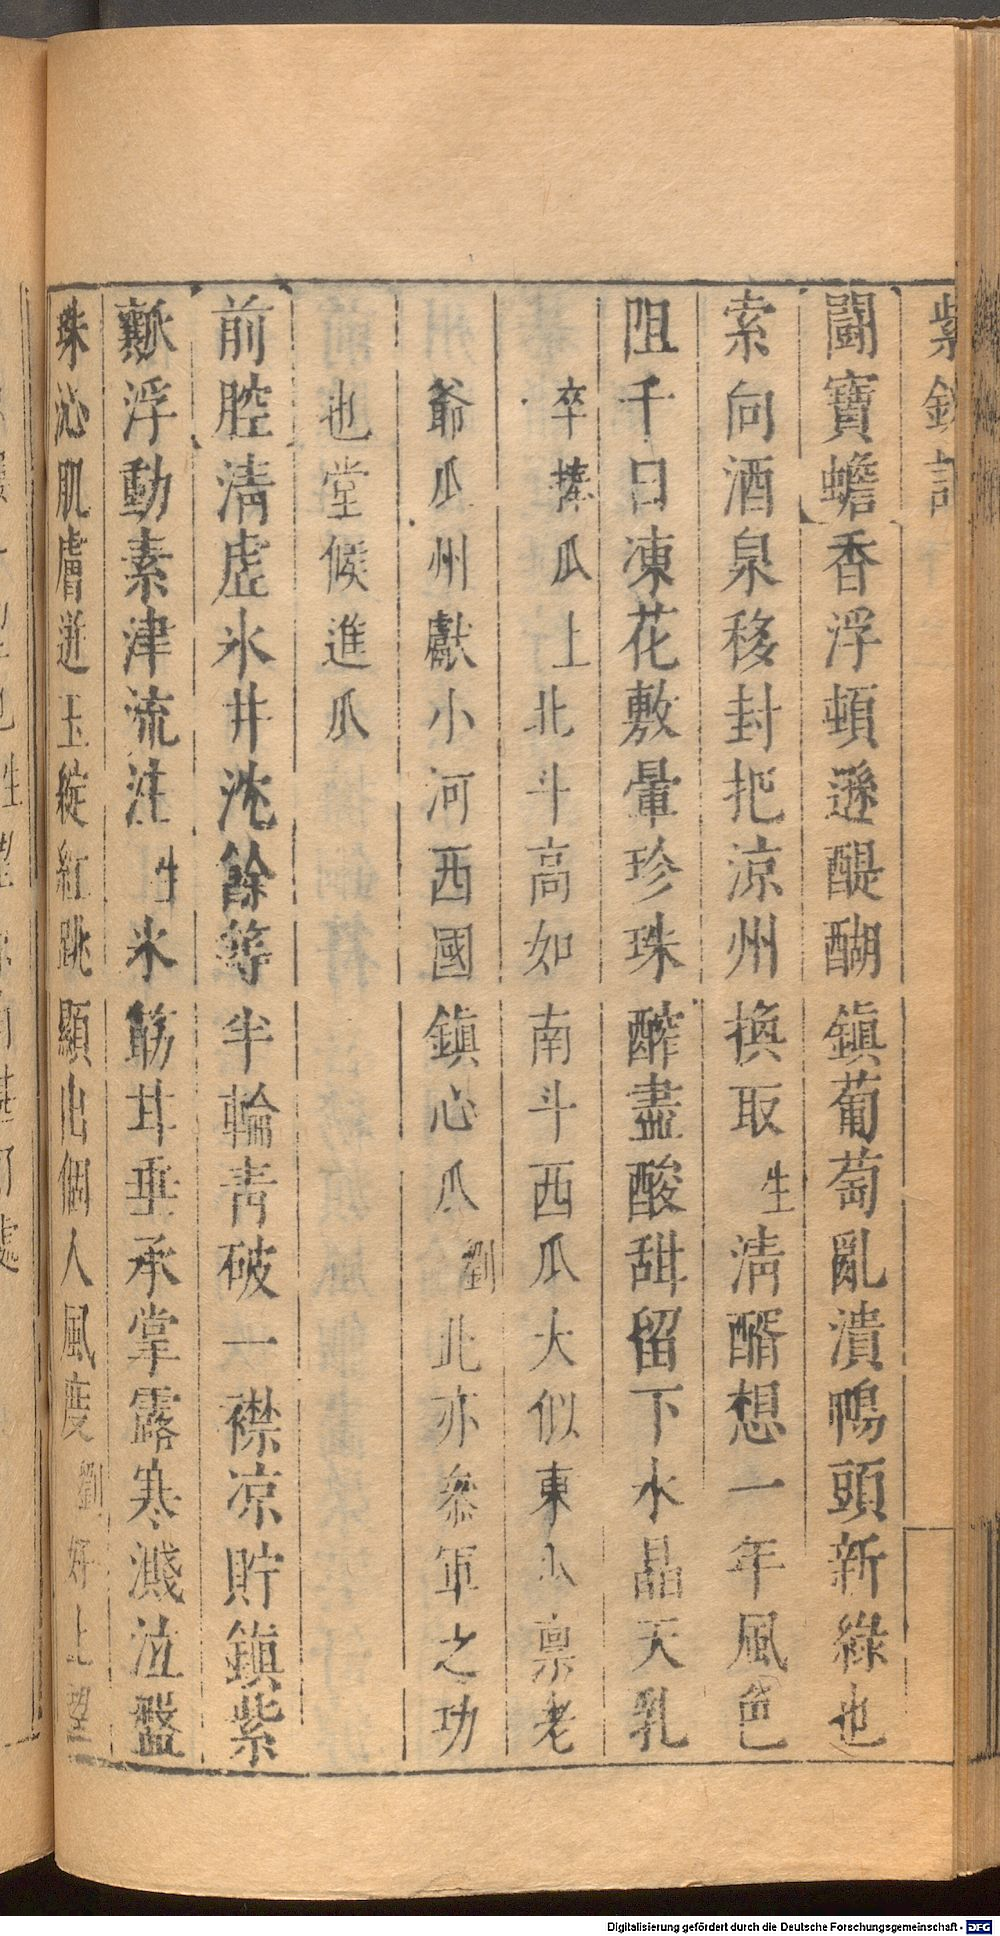 紫釵記
鬭寶蟾香浮頓遜醍醐鎮葡萄亂潰鴨頭新綠也
索向酒泉移封把涼州換取生清醑想一年風色
阻千日凍花敷暈珍珠醡盡酸甜留下水晶天乳
卒捧瓜上北斗高如南斗西瓜大似東瓜禀老
爺瓜州獻小河西國鎮心瓜劉此亦叅軍之功
也堂候進瓜
前腔清虛氷井沈餘䓁半輪青破一襟凉貯鎮紫
瓤浮動素津流注生氷筯甘垂承掌露寒濺泣盤
珠沁肌膚迸玉綻紅跳顯出個人風度劉好上望
Digitalisierung gefördert durch die Deutsche Forschungsgemeinschaft - DFG